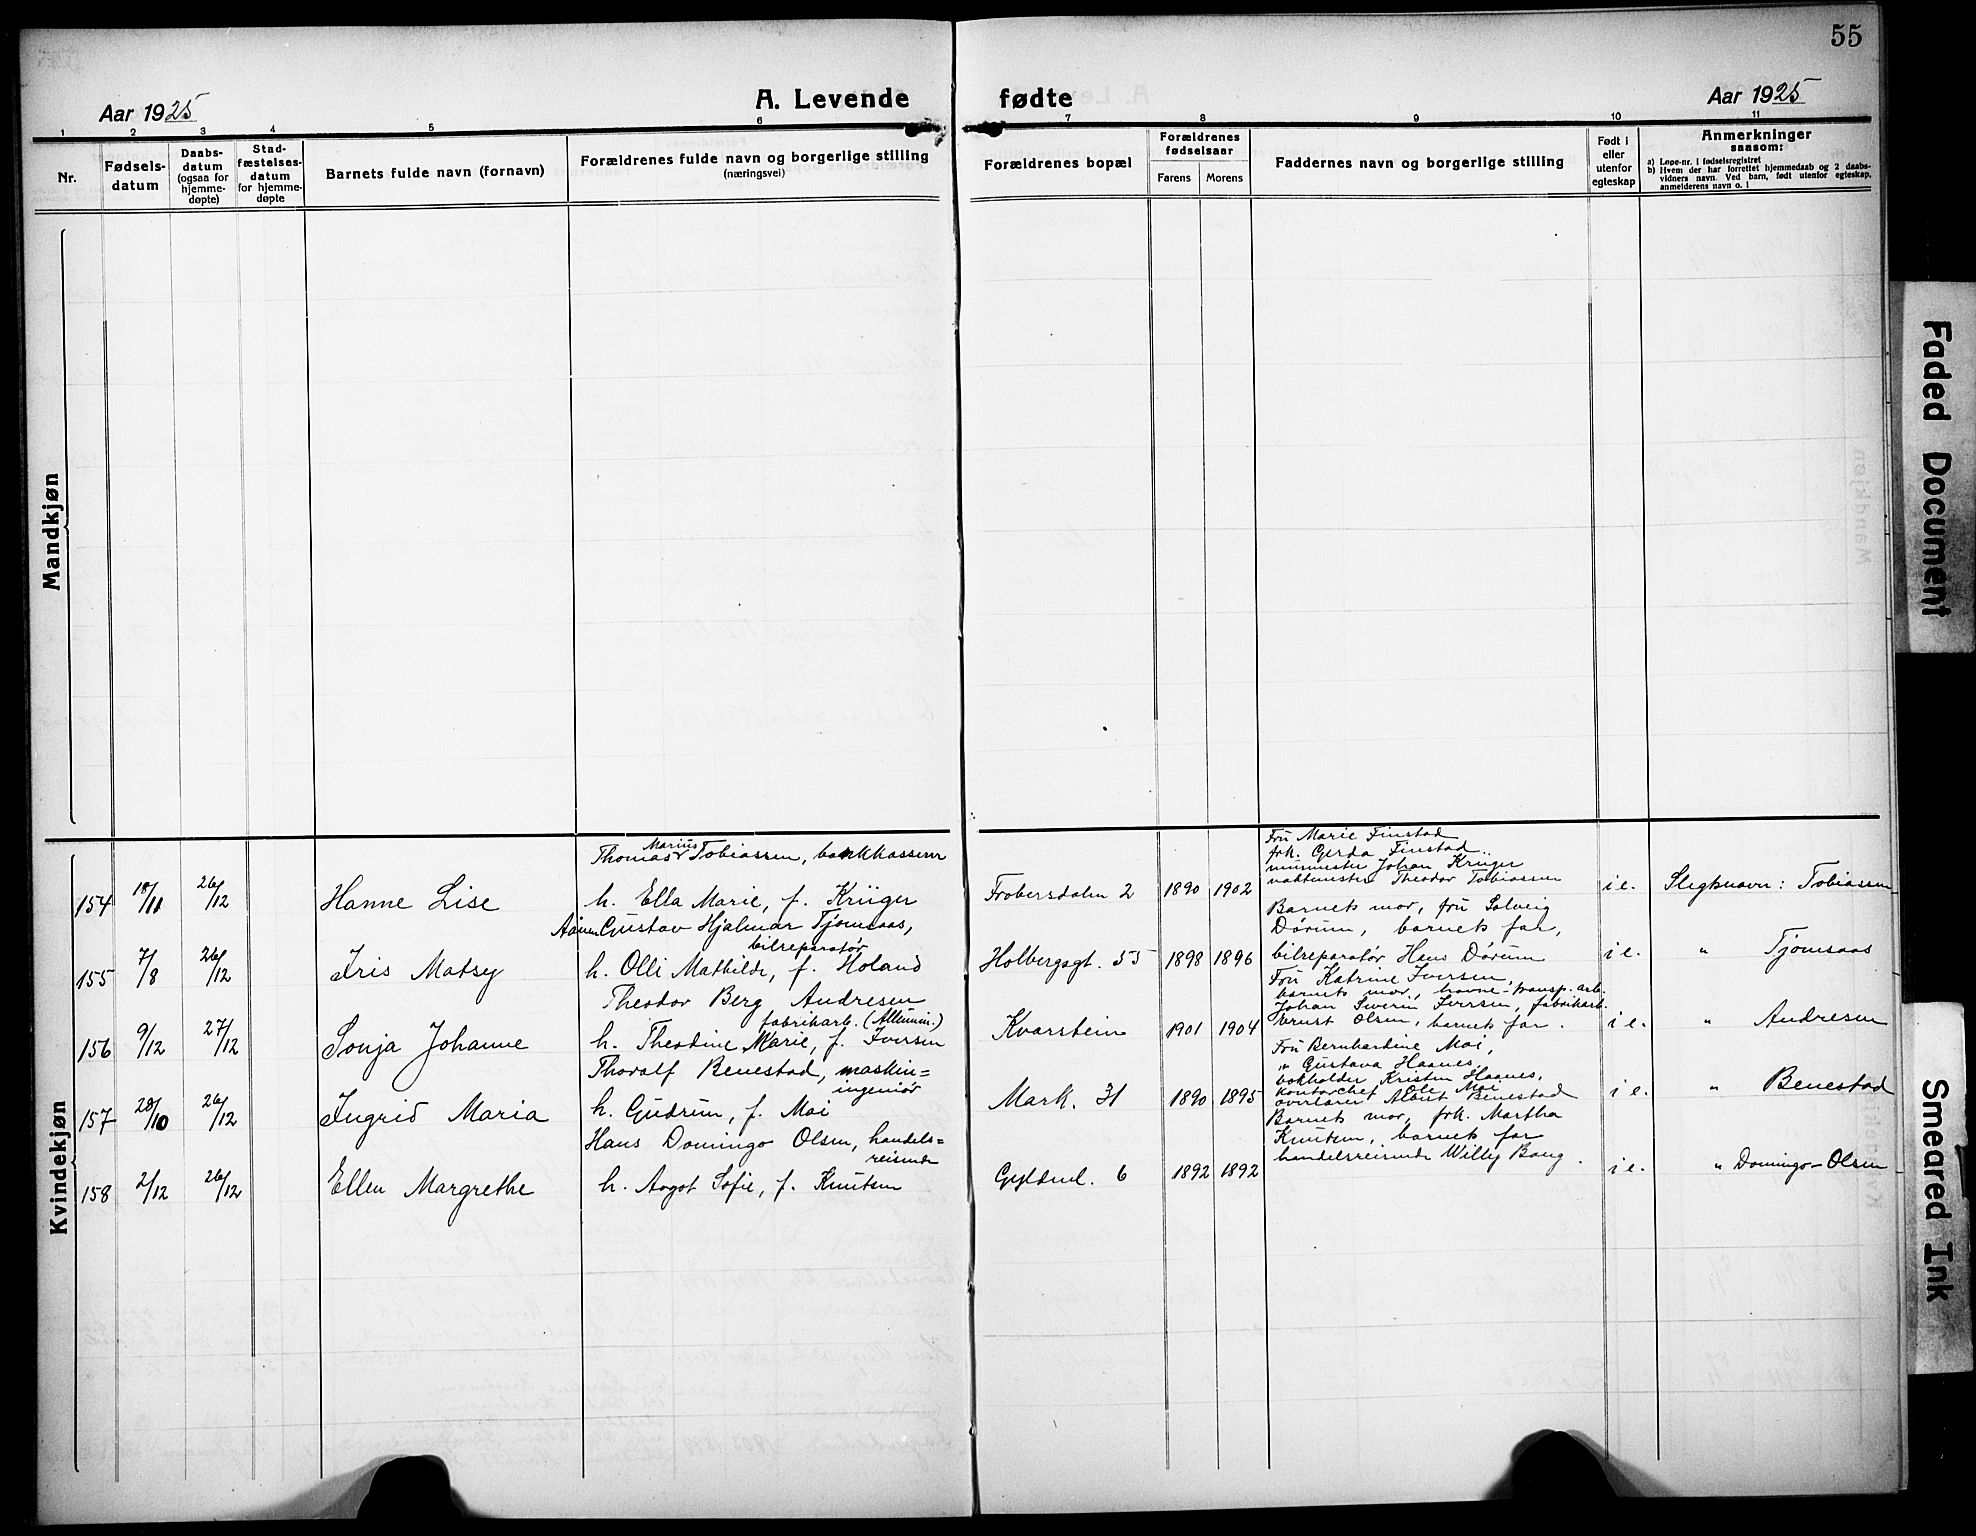 55
Aar 1925
A. Levende fødte
Aar 1925
1 2 3 4 5 6 7 8 9 10 11
Nr.
Fødsels-
datum
Daabs-
datum
(ogsaa for
hjemme-
døpte)
Stad-
fæstelses-
datum
for hjemme-
døpte
Barnets fulde navn (fornavn)
Forældrenes fulde navn og borgerlige stilling
(næringsvei)
Forældrenes bopæl
Forældrenes
fødselsaar
Farens Morens
Faddernes navn og borgerlige stilling
Født i
eller
utenfor
egteskap
Anmerkninger
saasom:
a) Løpe-nr. i fødselsregistret
b) Hvem der har forrettet hjemmedaab og 2 daabs-
vidners navn. Ved barn, født utenfor egteskap,
anmelderens navn o. l
Mandkjøn
Kvindekjøn
154 18/11 26/12 Hanne Lise
Thomas Marius Tobiassen, bankkasserer
h. Ella Marie, f. Krüger
Frobersdalen 2 1890 1902
Fru Marie Finstad
frk. Gerda Finstad
murmester Johan Krüger
vaktmester Theodor Tobiassen
i e. Slegtsnavn: Tobiassen
155 7/8 26/12 Iris Matsy
Gustav Hjalmar Tjomsaas,
bilreparatør
h. Olli Mathilde, f. Holand
Holbergsgt. 55 1898 1896
Barnets mor, fru Solveig
Dørum, barnets far,
bilreparatør Hans Dørum
i e. " Tjomsaas
156 9/12 27/12 Sonja Johanne
Theodor Berg Andresen
fabrikarb. (Allumin.)
h. Theodine Marie, f. Iversen
Kvarstein 1901 1904
Fru Katrine Iversen,
barnets mor, havne-transp. arb.
Johan Severin Iversen, fabrikarb.
Ernst Olsen, barnets far.
i e. " Andresen
157 28/10 26/12 Ingrid Maria
Thoralf Benestad, maskin=
ingeniør
h. Gudrun, f. Moi
Mark. 31 1890 1895
Fru Bernhardine Moi,
" Gustava Haanes,
bokholder Kristen Haanes,
kontorchef Ole Moi
overlærer Albert Benestad
i e. " Benestad
158 2/12 26/12 Ellen Margrethe
Hans Domingo Olsen, handels=
reisende
h. Aagot Sofie, f. Knutsen
Gyldenl. 6 1892 1892
Barnets mor, frk. Martha
Knutsen, barnets far
handelsreisende Willy Bang.
i e. " Domingo-Olsen
Faded Document
Smeared Ink